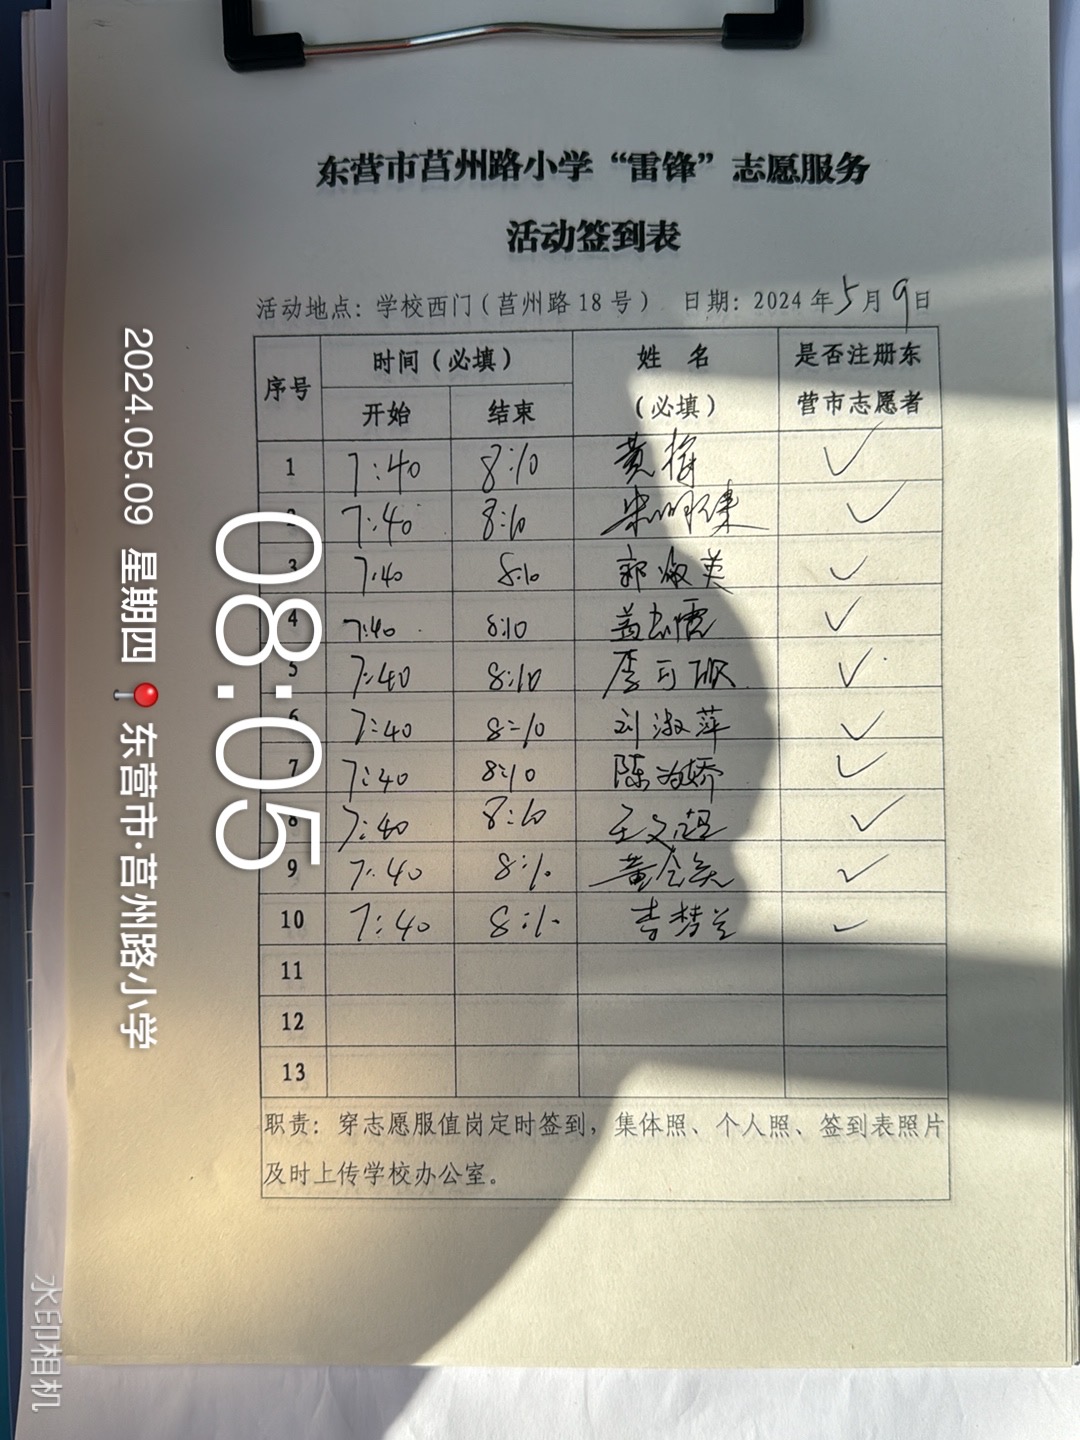 东营市莒州路小学“雷锋”志愿服务
活动签到表
活动地点：学校西门（莒州路18号） 日期：2024年5月9日
序号 时间（必填） 姓 名 是否注册东
开始 结束 （必填） 营市志愿者
1 7:40 8:10 黄梅 ✓
2 7:40 8:10 ✓
3 7:40 8:10 郭淑英 ✓
4 7:40 8:10 ✓
5 7:40 8:10 李可欣 ✓
6 7:40 8:10 刘淑萍 ✓
7 7:40 8:10 陈为娇 ✓
8 7:40 8:10 王文超 ✓
9 7:40 8:10 黄会英 ✓
10 7:40 8:10 李梦兰 ✓
11
12
13
职责：穿志愿服值岗定时签到，集体照、个人照、签到表照片
及时上传学校办公室。
08:05
2024.05.09 星期四 📍东营市·莒州路小学
水印相机